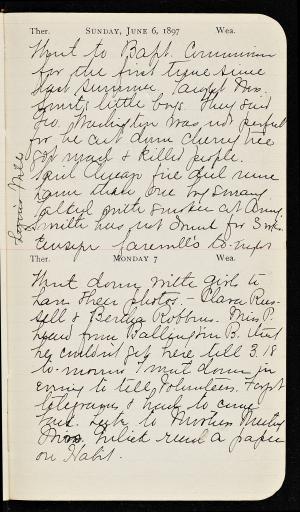 Ther. SUNDAY, JUNE 6, 1897 Wea.
Went to Bapt. Communion
for the first time since
last summer. Taught Mrs.
Smith's little boys. They said
Geo. Washington was not perfect
for he cut down cherry tree
got mad & killed people.
said Cheap five did more
harm than one by
talked with at Army.
Smith has not drunk for 3 wks.
farewell's to-night
Ther. MONDAY 7 Wea.
Went down with girls to
have their photos. – Clara Rus-
sell & Bertha Robbins. Miss P.
heard from Ballington B. that
he couldn't get here till 3.18
to-morrow I went down in
evening to tell Volunteers. Forgot
telegram & had to come
back. Late to Mothers Meeting
Miss read a paper
on Habit.